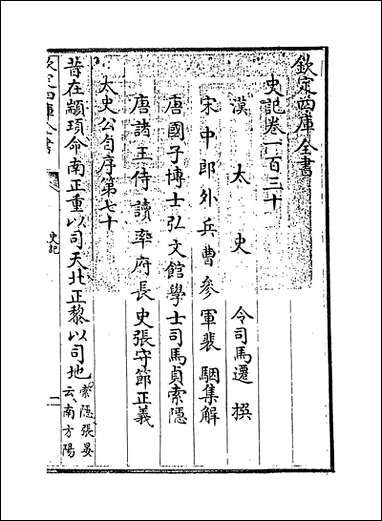 欽定四庫全書
史記卷一百三十
漢太史令司馬遷撰
宋中郎外兵曹參軍裴駰集解
唐國子博士弘文館學士司馬貞索隱
唐諸王侍讀率府長史張守節正義
太史公自序第七十
昔在顓頊命南正重以司天北正黎以司地
索隱張晏
云南方陽
欽定四庫全書
史記
一